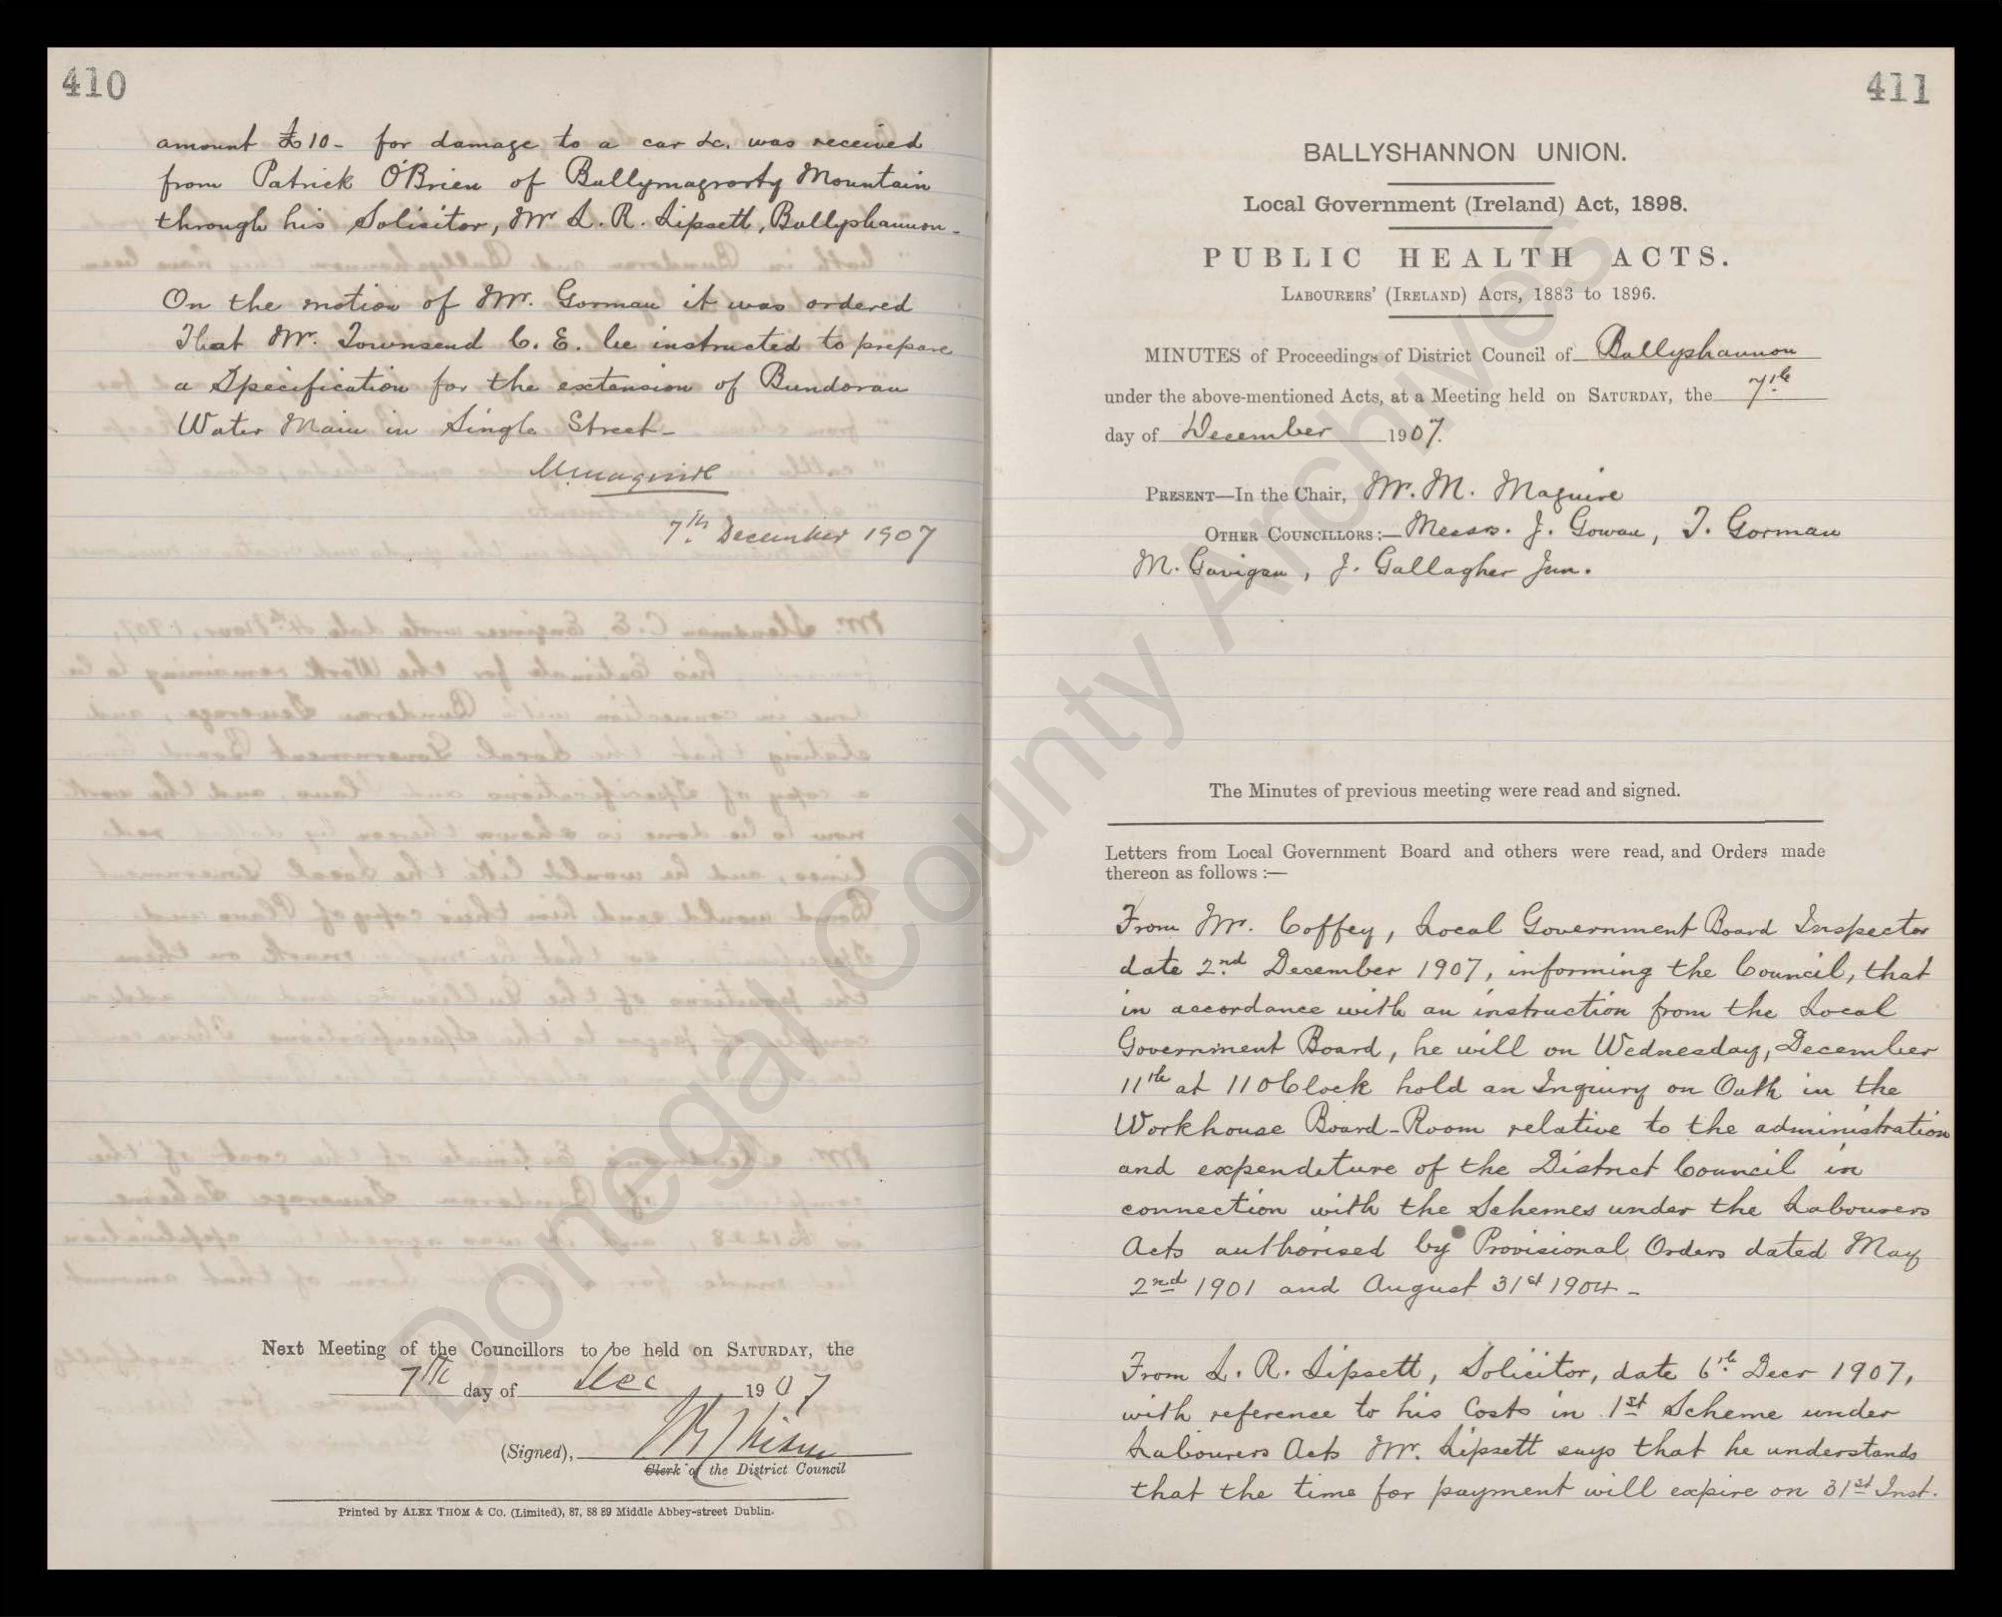 410
amount £10- for damage to a car &c. was received
from Patrick O'Brien of Ballymagrorty Mountain
through his Solicitor, Mr L. R. Lipsett, Ballyshannon-
On the motion of Mr. Gorman it was ordered
That Mr. Townsend C. E. be instructed to prepare
a Specification for the extension of Bundoran
Water Main in Single Street-
M Maguire
7th December 1907
Next Meeting of the Councillors to be held on SATURDAY, the
7th day of Dec 1907
(Signed),
Clerk of the District Council
Printed by ALEX THOM & Co. (Limited), 87, 88 89 Middle Abbey-street Dublin.
411
BALLYSHANNON UNION.
Local Government (Ireland) Act, 1898.
PUBLIC HEALTH ACTS.
LABOURERS' (IRELAND) ACTS, 1883 to 1896.
MINUTES of Proceedings of District Council of Ballyshannon
under the above-mentioned Acts, at a Meeting held on SATURDAY, the 7th
day of December 1907.
PRESENT—In the Chair, Mr. M. Maguire
OTHER COUNCILLORS:— Messrs. J. Gowan, T. Gorman
M. Gavigan, J. Gallagher Jun.
The Minutes of previous meeting were read and signed.
Letters from Local Government Board and others were read, and Orders made
thereon as follows :—
From Mr. Coffey, Local Government Board Inspector
date 2nd December 1907, informing the Council, that
in accordance with an instruction from the Local
Government Board, he will on Wednesday, December
11th at 11 OClock hold an Inquiry on Oath in the
Workhouse Board-Room relative to the administration
and expenditure of the District Council in
connection with the Schemes under the Labourers
Acts authorised by Provisional Orders dated May
2nd 1901 and August 31st 1904-
From L. R. Lipsett, Solicitor, date 6th Decr 1907,
with reference to his Costs in 1st Scheme under
Labourers Acts Mr. Lipsett says that he understands
that the time for payment will expire on 31st Inst.
Donegal County Archives